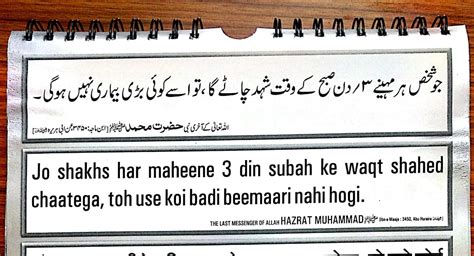 جو شخص ہر مہینے ۳/ دن صبح کے وقت شہد چاٹے گا، تو اسے کوئی بڑی بیماری نہیں ہوگی۔
اللہ تعالیٰ کے آخری نبی حضرت محمد ﷺ [ابن ماجہ: ۳۴۵۰، عن ابی ہریرہ]
Jo shakhs har maheene 3 din subah ke waqt shahed
chaatega, toh use koi badi beemaari nahi hogi.
THE LAST MESSENGER OF ALLAH HAZRAT MUHAMMAD ﷺ [Ibne Maaja : 3450, Abu Huraira